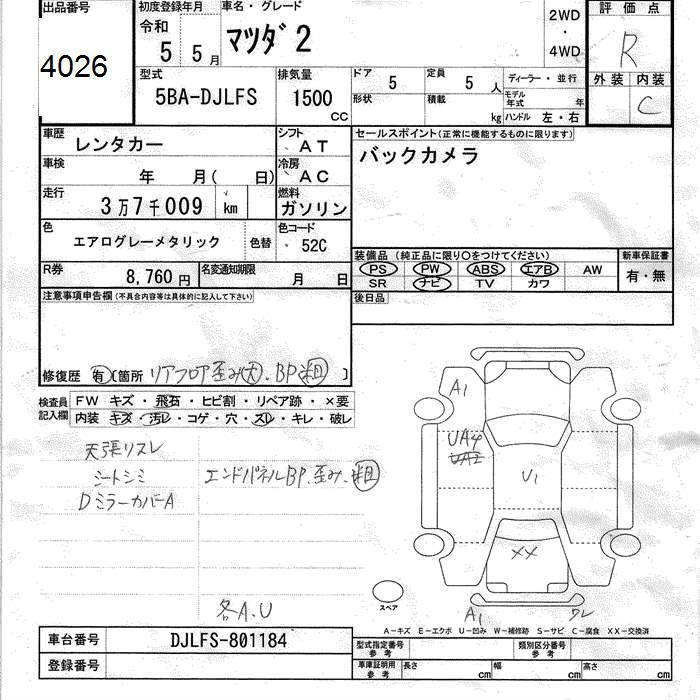 出品番号 初度登録年月 車名・グレード 2WD・4WD 評価点
4026 令和 5 5月 マツダ2 R
型式 排気量 ドア 5 定員 5人 ディーラー・並行 外装 内装
5BA-DJLFS 1500 CC 形状 積載 kg モデル年式 年 ハンドル 左・右 C
車歴 レンタカー シフト AT セールスポイント(正常に機能するものに限ります)
車検 年 月( 日) 冷房 AC バックカメラ
走行 3万7千009 km 燃料 ガソリン
色 エアログレーメタリック 色替 色コード 52C
装備品 (純正品に限り〇をつけてください) 新車保証書
PS PW ABS エアB AW 有・無
SR ナビ TV カワ
R券 8,760円 名変通知期限 月 日
後日品
注意事項申告欄(不具合内容等は具体的に記入して下さい)
修復歴 有 [箇所 リアフロア歪み(大)、BP(粗) ]
検査員記入欄 FW キズ・飛石・ヒビ割・リペア跡・×要
内装 キズ・汚レ・コゲ・穴・スレ・キレ・破レ
天張リスレ
シートシミ エンドパネルBP、歪み、(粗)
DミラーカバーA
各A.U
A1
UA4
UA2
U1
XX
スペア
A1 ワレ
A−キズ E−エクボ U−凹み W−補修跡 S−サビ C−腐食 XX−交換済
車台番号 DJLFS-801184 型式指定番号 参考 類別区分番号 参考
登録番号 車庫証明用 参考 長さ cm 幅 cm 高さ cm